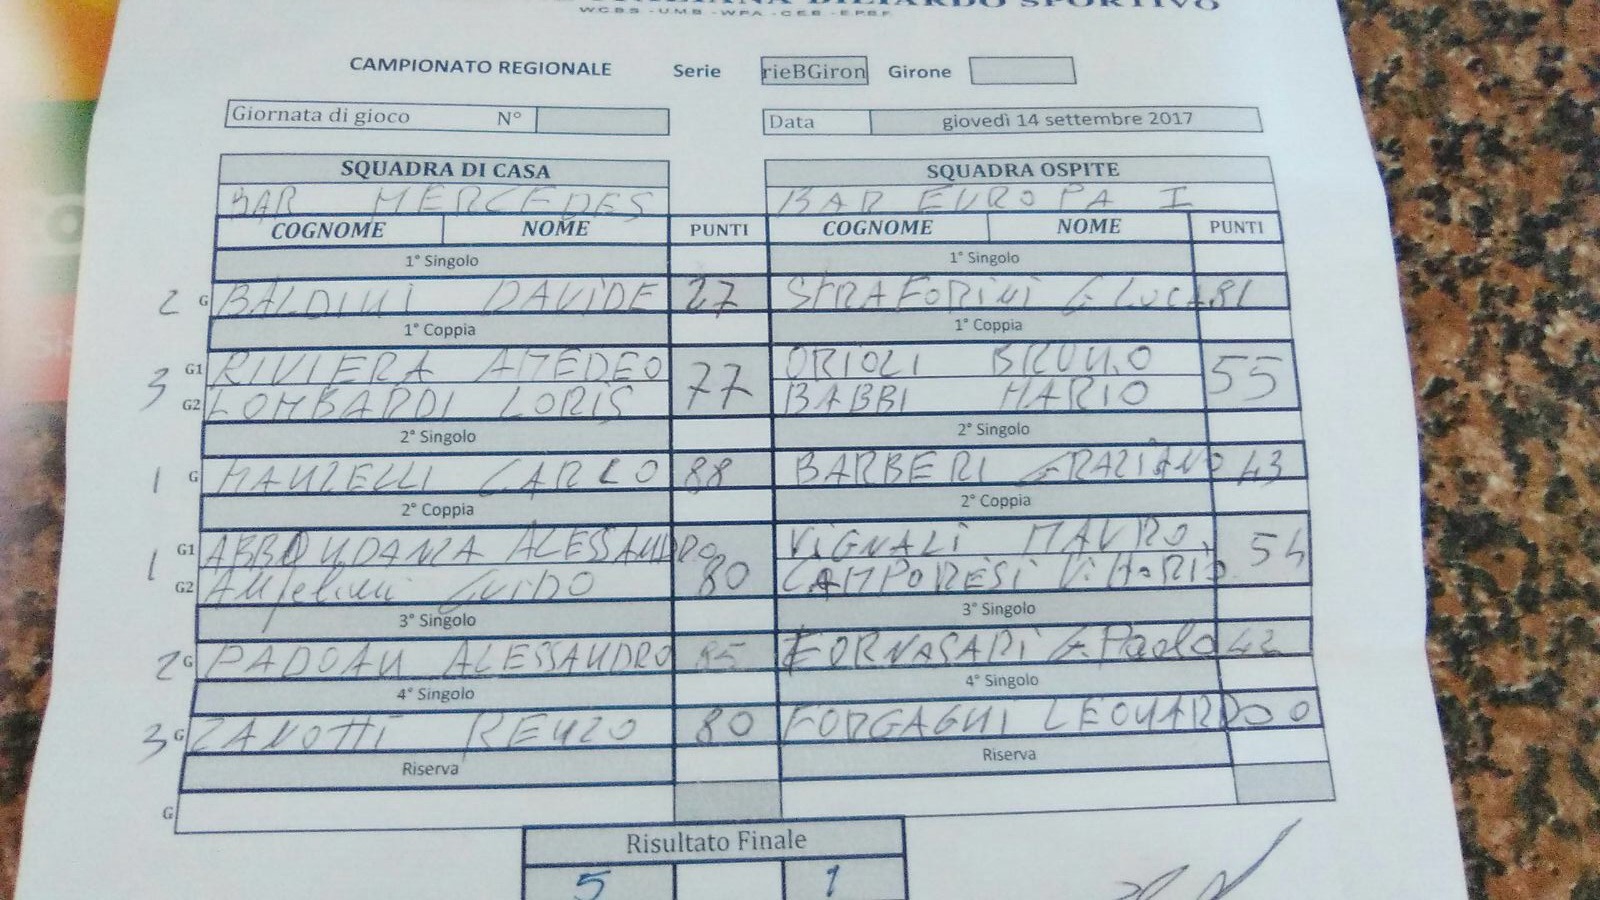 ITALIANA BILIARDO SPORTIVO
WCBS - UMB - WPA - CEB - EPBF
CAMPIONATO REGIONALE Serie rieBGiron Girone
Giornata di gioco N° Data giovedì 14 settembre 2017
SQUADRA DI CASA SQUADRA OSPITE
BAR MERCEDES BAR EUROPA I
COGNOME NOME PUNTI COGNOME NOME PUNTI
1° Singolo 1° Singolo
2 G BALDINI DAVIDE 27 STRAFORINI G. LUCA 81
1° Coppia 1° Coppia
3 G1 RIVIERA AMEDEO 77 ORIOLI BRUNO 55
G2 LOMBARDI LORIS BABBI MARIO
2° Singolo 2° Singolo
1 G MANZELLI CARLO 88 BARBERI GRAZIANO 43
2° Coppia 2° Coppia
1 G1 ABBONDANZA ALESSANDRO 80 VIGNALI MAURO 54
G2 Angelini GUIDO CAMPORESI VITTORIO
3° Singolo 3° Singolo
2 G PADOAN ALESSANDRO 85 FORNASARI G. Paolo 42
4° Singolo 4° Singolo
3 G ZANOTTI RENZO 80 FORGAGNI LEONARDO 0
Riserva Riserva
G
Risultato Finale
5 1